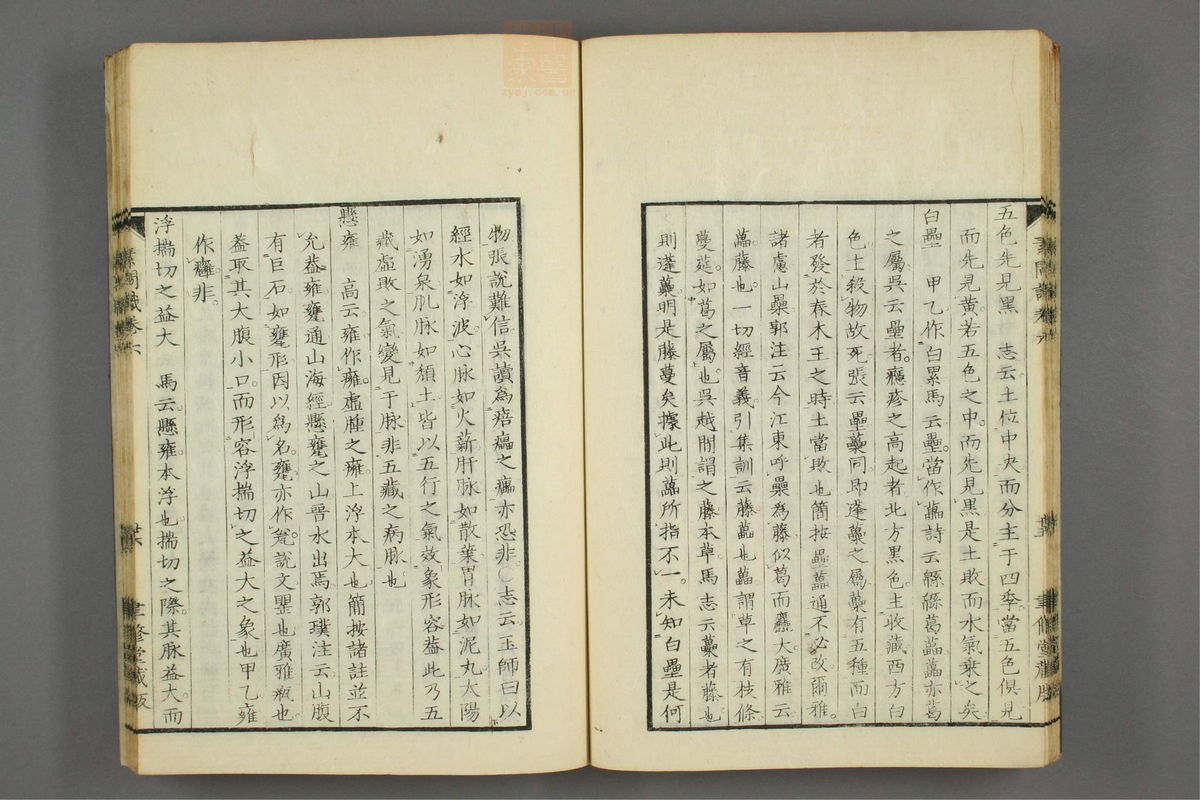 五色先見黑　志云土位中央而分主于四季當五色俱見
而先見黃若五色之中而先見黑是土敗而水氣乗之矣
白壘　甲乙作白累馬云壘當作藟詩云緜緜葛藟藟亦葛
之屬吳云壘者癮疹之高起者北方黑色主收藏西方白
色土殺物故死張云壘虆同即蓬虆之屬虆有五種而白
者發於春木王之時土當敗也簡按壘藟通不必改爾雅
諸慮山櫐郭注云今江東呼櫐為藤似葛而麤大廣雅云
藟藤也一切經音義引集訓云藤藟也藟謂草之有枝條
蔓莚如葛之屬也吳越間謂之藤本草馬志云虆者藤也
則蓬虆明是藤蔓矣據此則藟所指不一未知白壘是何
物張說難信吳讀為痦㿔之㿔亦恐非○志云玉師曰以
經水如浮波心脉如火薪肝脉如散葉胃脉如泥丸太陽
如湧泉肌脉如頹土皆以五行之氣效象形容葢此乃五
藏虛敗之氣變見于脉非五藏之病脉也
懸雍　高云雍作癰虛腫之癰上浮本大也簡按諸註並不
允葢雍甕通山海經懸甕之山晉水出焉郭璞注云山腹
有巨石如甕形因以為名甕亦作瓮說文罌也廣雅瓶也
葢取其大腹小口而形容浮揣切之益大之象也甲乙雍
作癰非
浮揣切之益大　馬云懸雍本浮也揣切之際其脉益大而
素問識卷六
聿修堂藏版